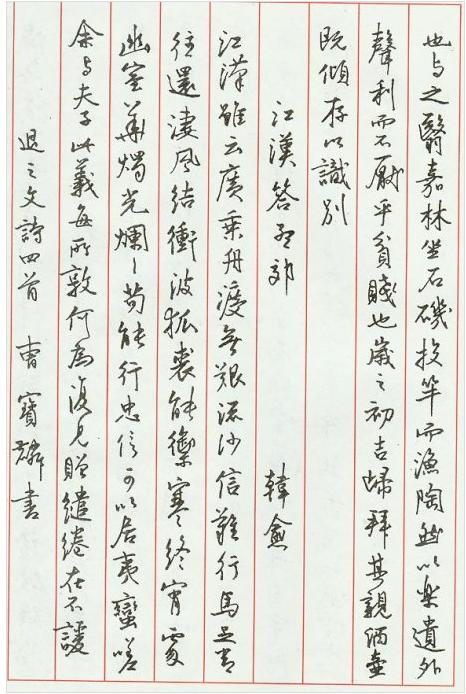 也与之翳嘉林坐石磯投竿而漁陶然以樂遺外
聲利而不厭乎貧賤也歲之初吉歸拜其親酒壺
既傾序以識別
江漢答孟郊 韓愈
江漢雖云廣乘舟渡無艱流沙信難行馬足常
往還淒風結衝波狐裘能禦寒終宵處
幽室華燭光爛々苟能行忠信可以居夷蠻嗟
余与夫子此義每所敦何為復見贈繾綣在不諼
退之文詩四首 曹寶麟書